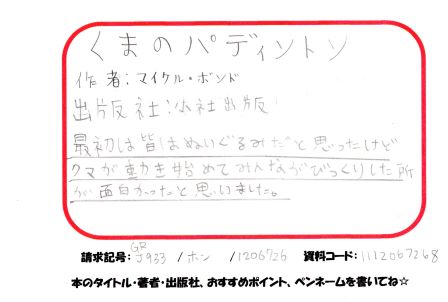 くまのパディントン
作者:マイケル・ボンド
出版社:小社出版
最初は皆はぬいぐるみだと思ったけど
クマが動き始めてみんながびっくりした所
が面白かったと思いました。
GR
請求記号:J933 /ホン /1206726 資料コード:1112067268
本のタイトル・著者・出版社、おすすめポイント、ペンネームを書いてね☆